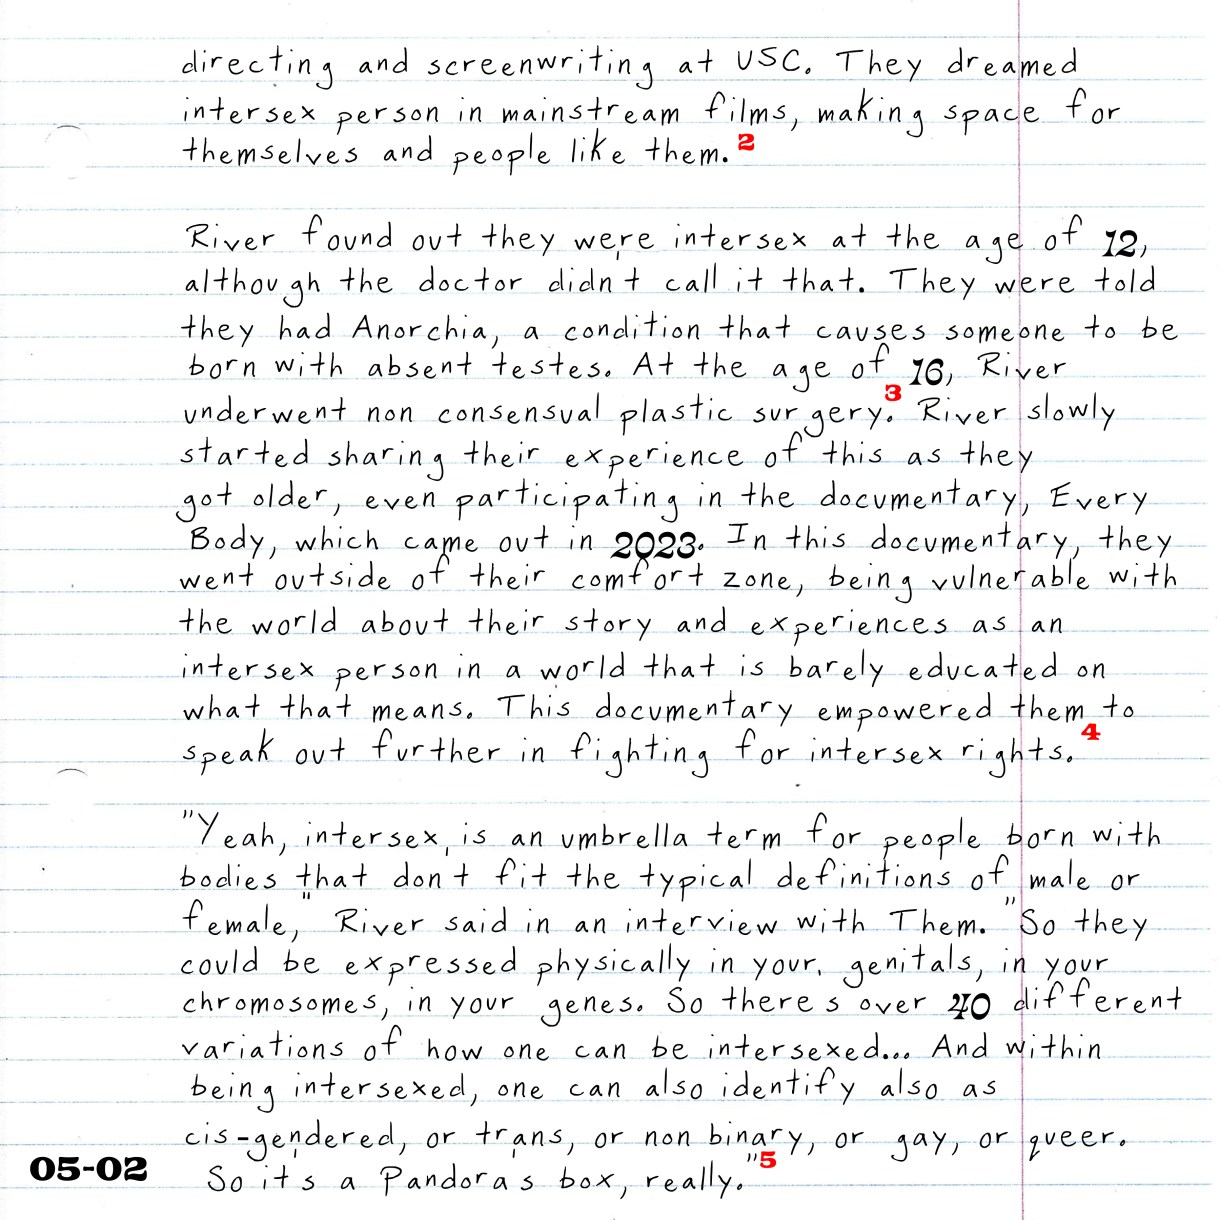 directing and screenwriting at USC. They dreamed
intersex person in mainstream films, making space for
themselves and people like them. 2
River found out they were intersex at the age of 12,
although the doctor didn t call it that. They were told
they had Anorchia, a condition that causes someone to be
born with absent testes. At the age of 16, River
underwent non consensual plastic surgery. 3 River slowly
started sharing their experience of this as they
got older, even participating in the documentary, Every
Body, which came out in 2023. In this documentary, they
went outside of their comfort zone, being vulnerable with
the world about their story and experiences as an
intersex person in a world that is barely educated on
what that means. This documentary empowered them to
speak out further in fighting for intersex rights. 4
"Yeah, intersex, is an umbrella term for people born with
bodies that don t fit the typical definitions of male or
female," River said in an interview with Them. "So they
could be expressed physically in your, genitals, in your
chromosomes, in your genes. So there s over 40 different
variations of how one can be intersexed... And within
being intersexed, one can also identify also as
cis-gendered, or trans, or non binary, or gay, or queer.
So it s a Pandora s box, really." 5
05-02